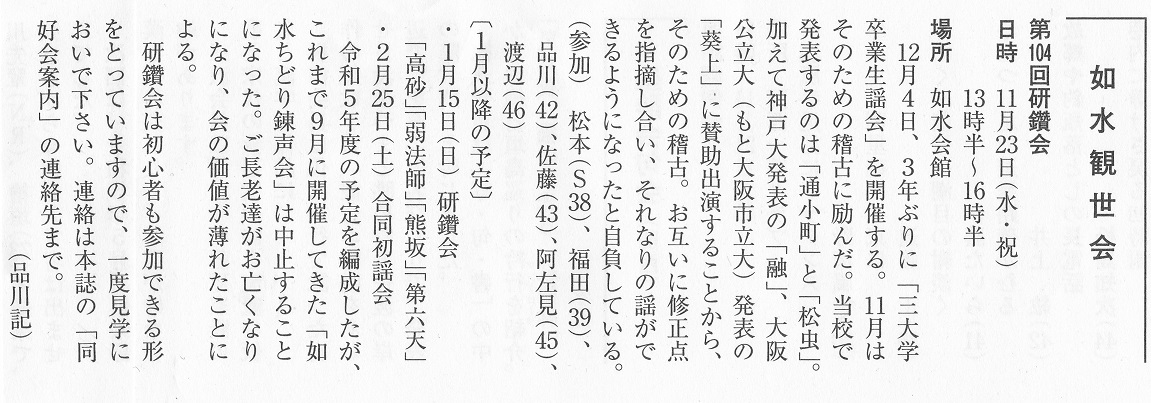 如水観世会
第104回研鑽会
日時　11月23日(水 祝)
13時半～16時半
場所　如水会館
12月4日、3年ぶりに「三大学
卒業生謡会」を開催する。11月は
そのための稽古に励んだ。当校で
発表するのは「通小町」と「松虫」。
加えて神戸大発表の「融」、大阪
公立大（もと大阪市立大）発表の
「葵上」に賛助出演することから、
そのための稽古。お互いに修正点
を指摘し合い、それなりの謡がで
きるようになったと自負している。
（参加）　松本(S38)、福田(39)、
品川(42)、佐藤(43)、阿左見(45)、
渡辺(46)
〔1月以降の予定〕
・1月15日(日) 研鑽会
「高砂」「弱法師」「熊坂」「第六天」
・2月25日(土) 合同初謡会
令和5年度の予定を編成したが、
これまで9月に開催してきた「如
水ちどり錬声会」は中止すること
になった。ご長老達がお亡くなり
になり、会の価値が薄れたことに
よる。
研鑽会は初心者も参加できる形
をとっていますので、一度見学に
おいで下さい。連絡は本誌の「同
好会案内」の連絡先まで。
（品川記）